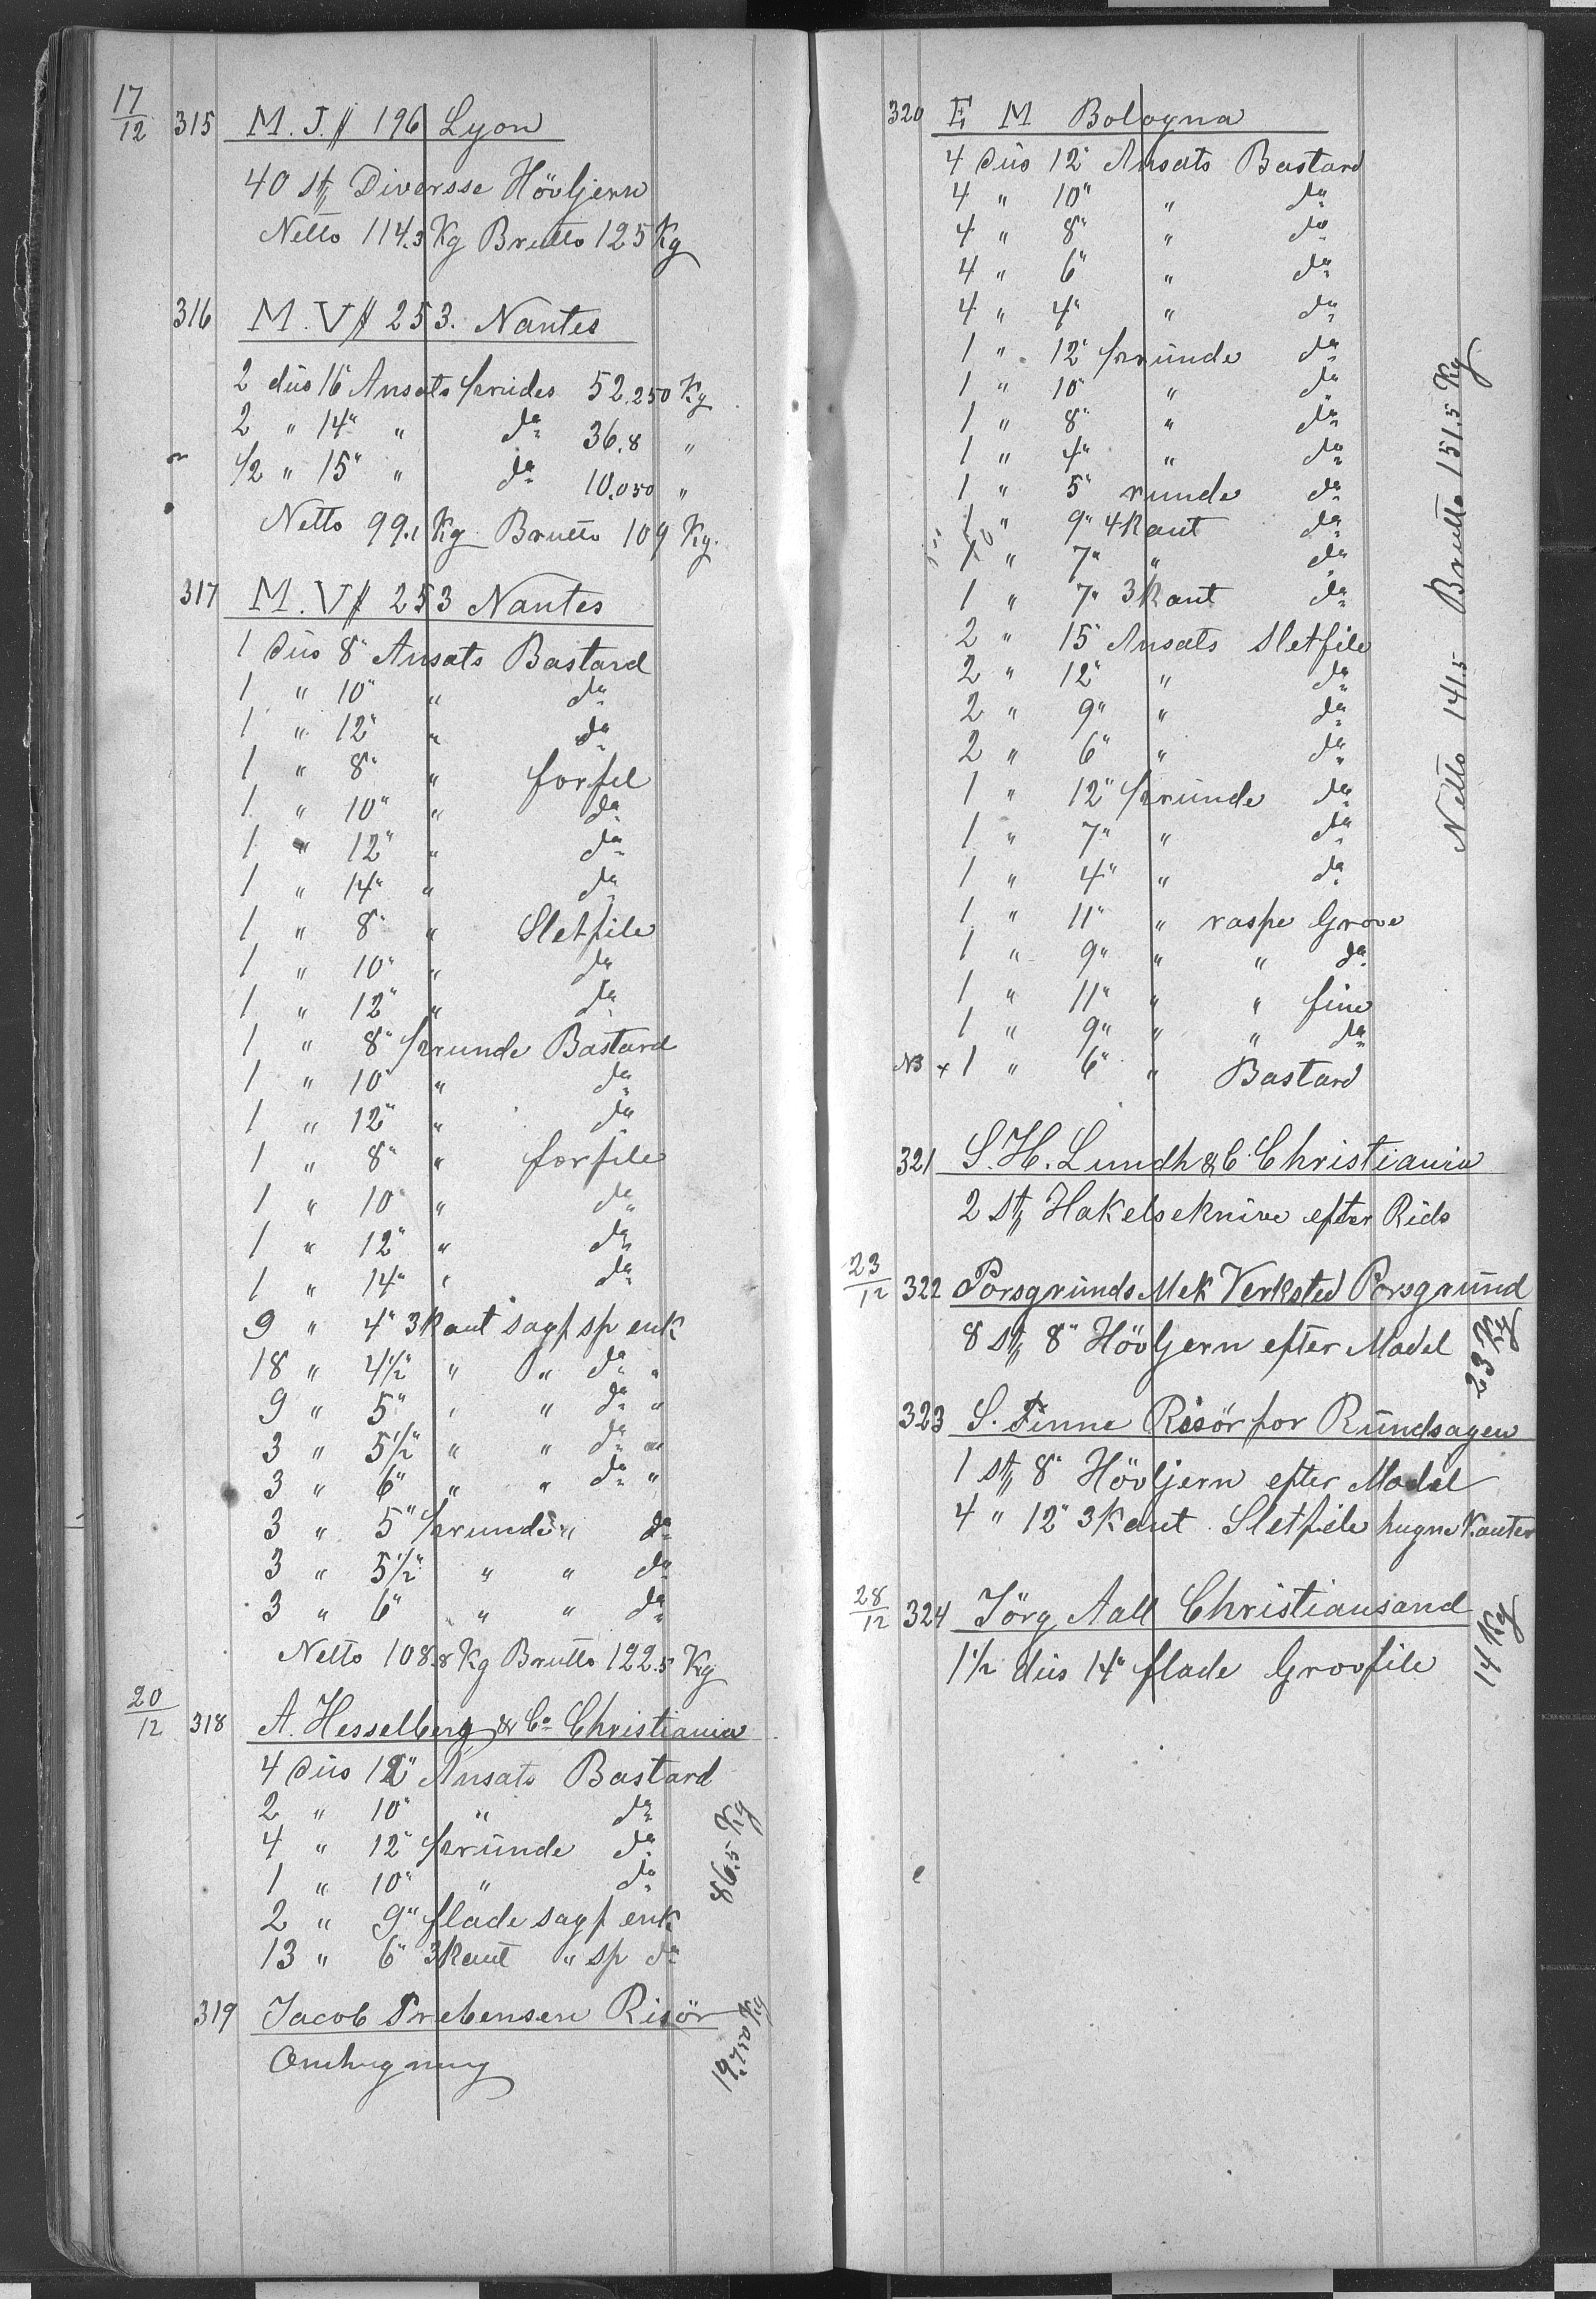 17/12 315 M. J. # 196 Lyon
40 st Diversse Hövljern
Netto 114.3 Kg Brutto 125 Kg
316 M. V # 253. Nantes
2 düs 16" Ansats 52.250 Kg
2 " 14" " do 36.8 "
1/2 " 15" " do 10.050 "
Netto 99.1 Kg Brutto 109 Kg.
317 M. V # 253 Nantes
1 Düs 8" Ansats Bastard
1 " 10" " do
1 " 12" " do
1 " 8" " forfil
1 " 10" " do
1 " 12" " do
1 " 14" " do
1 " 8" " Sletfile
1 " 10" " do
1 " 12" " do
1 " 8" 1/2runde Bastard
1 " 10" " do
1 " 12" " do
1 " 8" " forfile
1 " 10" " do
1 " 12" " do
1 " 14" " do
9 " 4" 3Kant sagf sp enk
18 " 4 1/2" " " do "
9 " 5" " " do "
3 " 5 1/2" " " do "
3 " 6" " " do "
3 " 5" 1/2runde " do
3 " 5 1/2" " " do
3 " 6" " " do
Netto 108.8 Kg Brutto 122.5 Kg
20/12 318 A. Hesselberg & Co Christiania
4 Düs 12" Ansats Bastard
2 " 10" " do
4 " 12" 1/2runde do
1 " 10" " do
2 " 9" flade sagf enk
13 " 6" 3Kant " sp do
86.5 Kg
319 Jacob Prebensen Risör
Omhugning
19.750 Kg
320 E M Bologna
4 Düs 12" Ansats Bastard
4 " 10" " do
4 " 8" " do
4 " 6" " do
4 " 4" " do
1 " 12" 1/2runde do
1 " 10" " do
1 " 8" " do
1 " 4" " do
1 " 5" runde do
1 " 9" 4Kant do
1 " 7" " do
1 " 7" 3Kant do
2 " 15" Ansats Sletfile
2 " 12" " do
2 " 9" " do
2 " 6" " do
1 " 12" 1/2runde do
1 " 7" " do
1 " 4" " do
1 " 11" " raspe Grove
1 " 9" " " do
1 " 11" " " fine
1 " 9" " " do
NB x 1 " 6" " Bastard
Netto 141.5 Brutto 151.5 Kg
321 S. H. Lundh & C. Christiania
2 st Hakelseknive efter Rids
23/12 322 Porsgrunds Mek Verksted Porsgrund
8 st 8" Hövljern efter Model
23 Kg
323 S. Finne Risör for Rundsagen
1 st 8" Hövljern efter Model
4 " 12" 3Kant Sletfile hugne Kanter
28/12 324 Jörg Aall Christiansand
1 1/2 düs 14" flade Grovfile
14 Kg